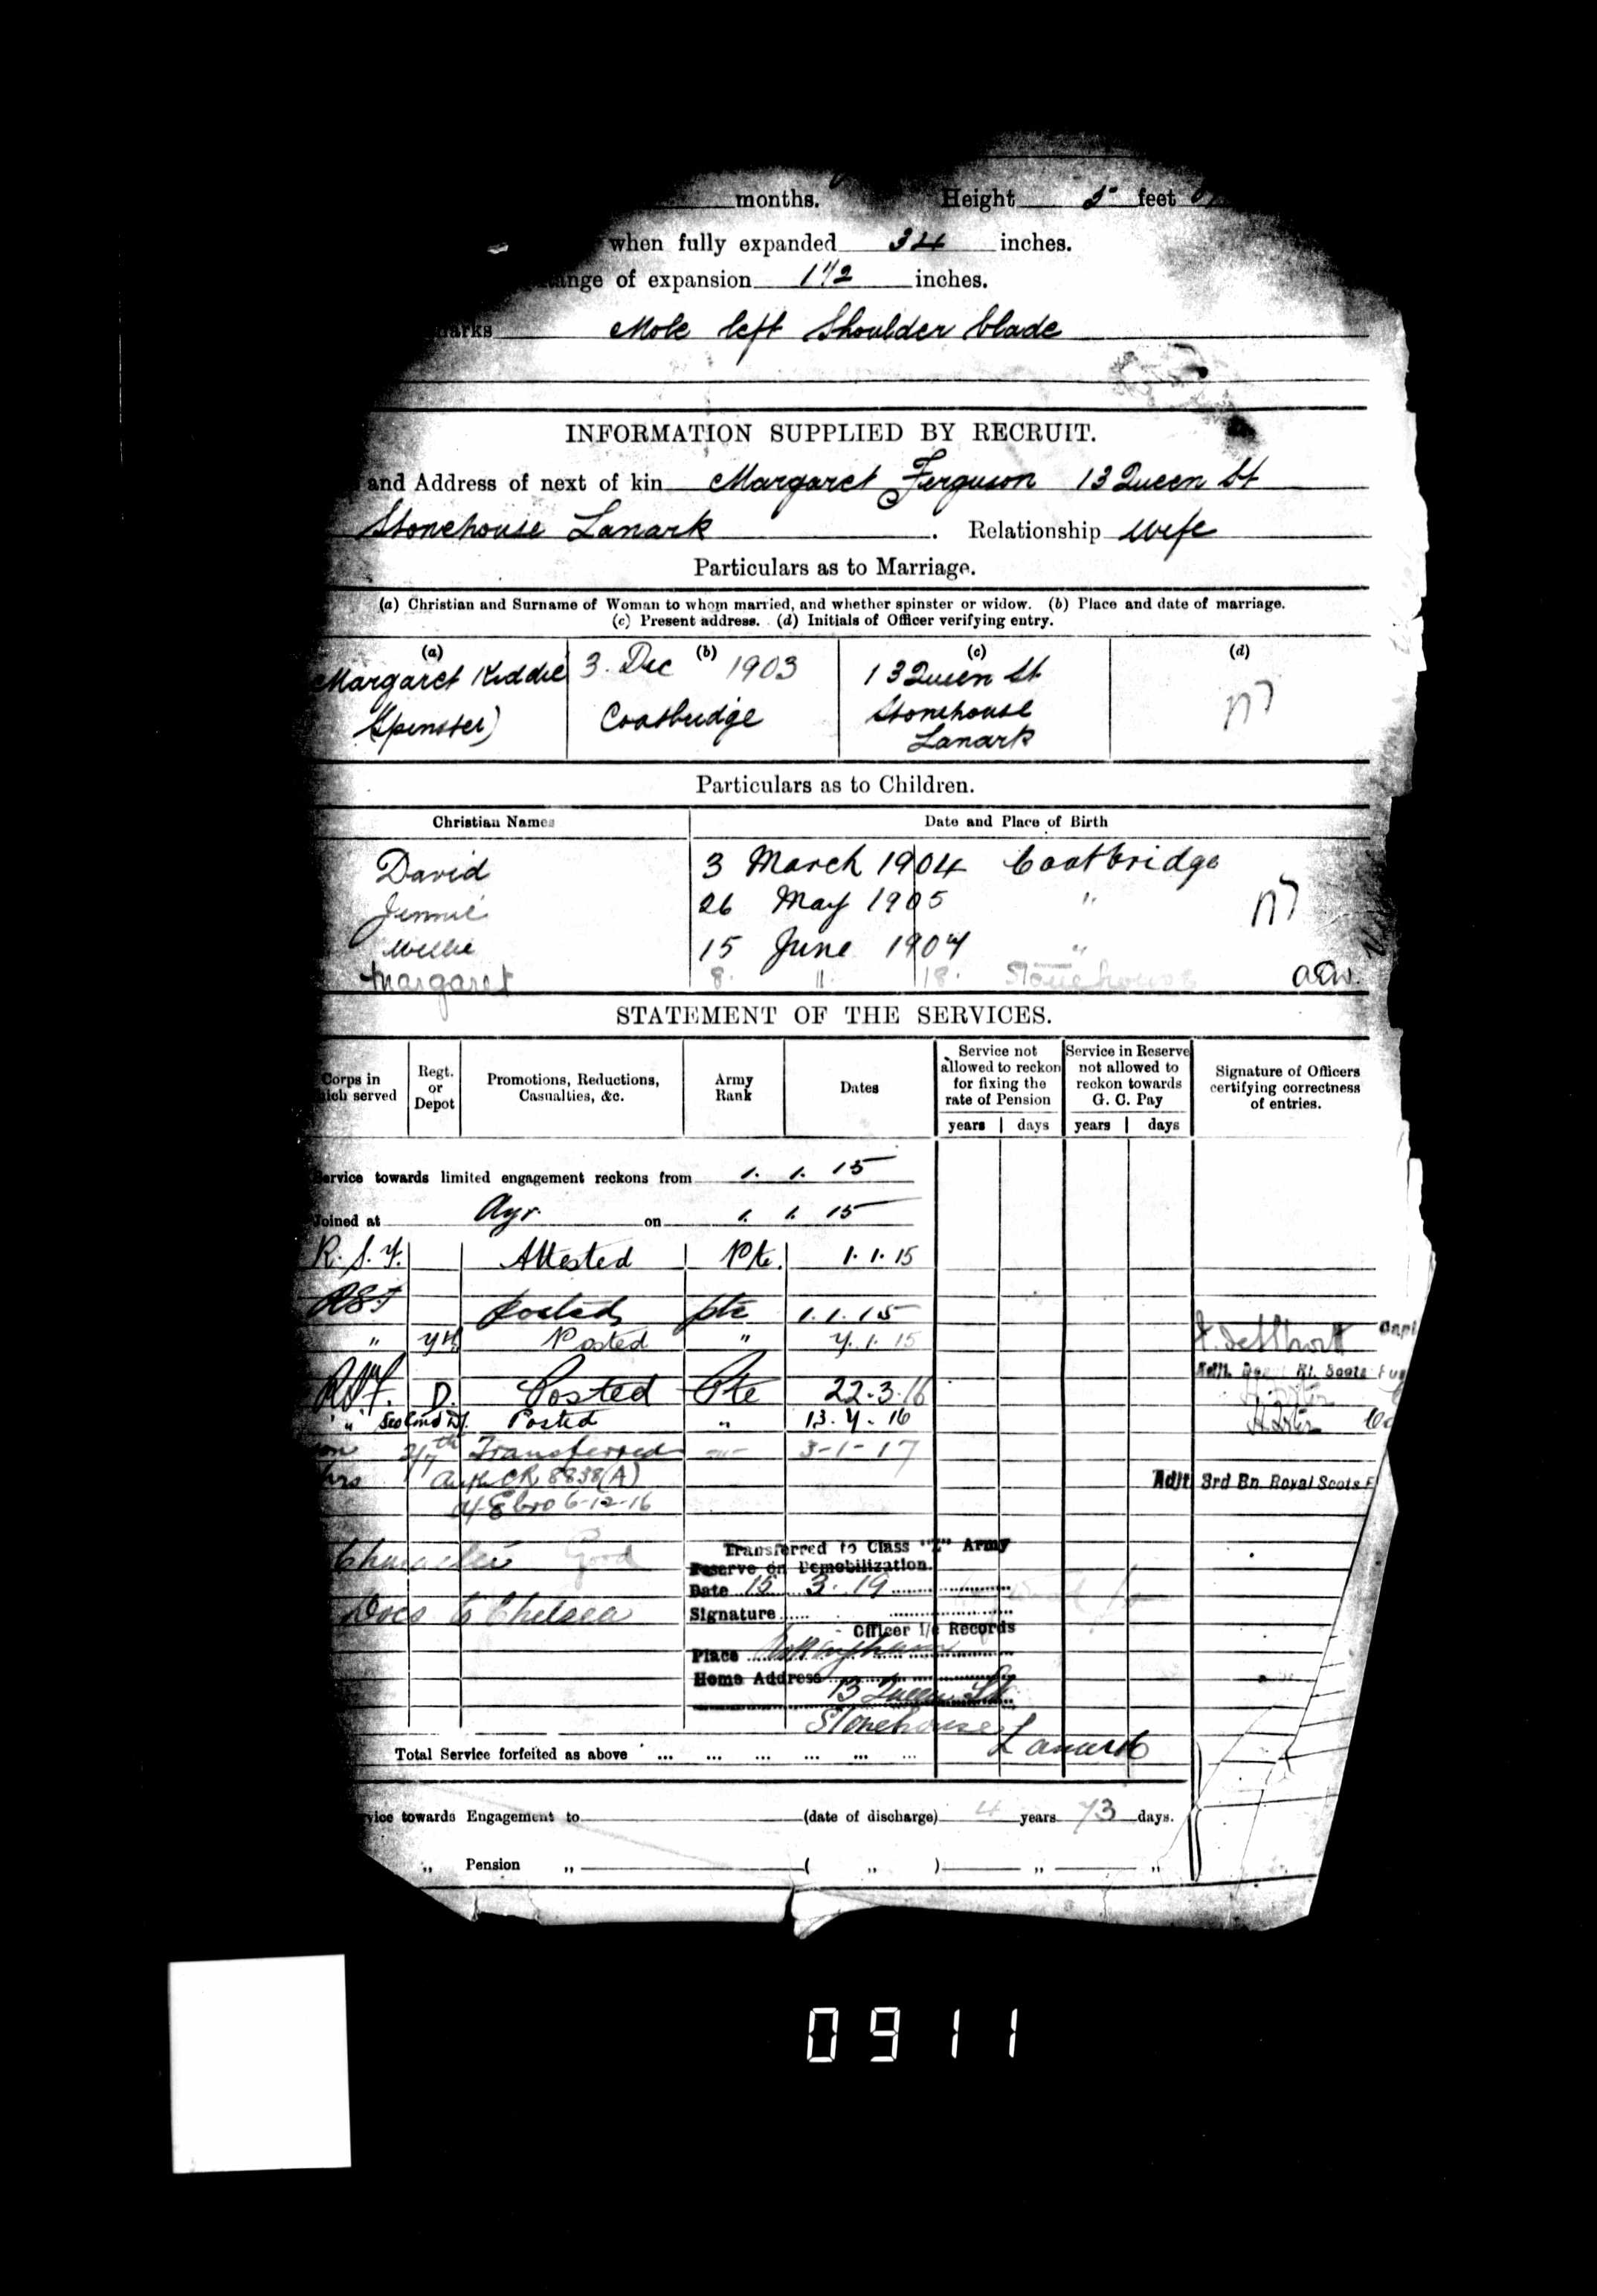 months. Height 5 feet
when fully expanded 34 inches.
ange of expansion 1 1/2 inches.
arks Mole left Shoulder blade
INFORMATION SUPPLIED BY RECRUIT.
and Address of next of kin Margaret Ferguson 13 Queen St
Stonehouse Lanark . Relationship wife
Particulars as to Marriage.
(a) Christian and Surname of Woman to whom married, and whether spinster or widow. (b) Place and date of marriage.
(c) Present address. (d) Initials of Officer verifying entry.
(a) (b) (c) (d)
Margaret Kiddie 3. Dec 1903 13 Queen St
(Spinster) Coatbridge Stonehouse
Lanark
Particulars as to Children.
Christian Names Date and Place of Birth
David 3 March 1904 Coatbridge
Jennie 26 May 1905 "
Willie 15 June 1907 "
Margaret 8. " 18. Stonehouse
STATEMENT OF THE SERVICES.
Corps in which served Regt. or Depot Promotions, Reductions, Casualties, &c. Army Rank Dates Service not allowed to reckon for fixing the rate of Pension Service in Reserve not allowed to reckon towards G. C. Pay Signature of Officers certifying correctness of entries.
years days years days
Service towards limited engagement reckons from 1. 1. 15
Joined at Ayr. on 1. 1. 15
R. S. F. Attested Pte. 1. 1. 15
RSF Posted pte 1. 1. 15
" 7th Posted " 7. 1. 15
Adjt. Depot Rl. Scots Fus
RSF. D. Posted Pte 22.3.16
" Posted " 13. 7. 16
3/7th Transferred 3-1-17
Auth CR 8838(A)
6-12-16
Adjt 3rd Bn. Royal Scots F
Character Good
Docs to Chelsea
Transferred to Class "Z" Army
Reserve on Demobilization.
Date 15 3. 19
Signature
Officer I/c Records
Place
Home Address 13 Queen St
Stonehouse
Lanark
Total Service forfeited as above ... ... ... ... ... ...
vice towards Engagement to (date of discharge) 4 years 73 days.
" Pension " ( " ) " "
0911